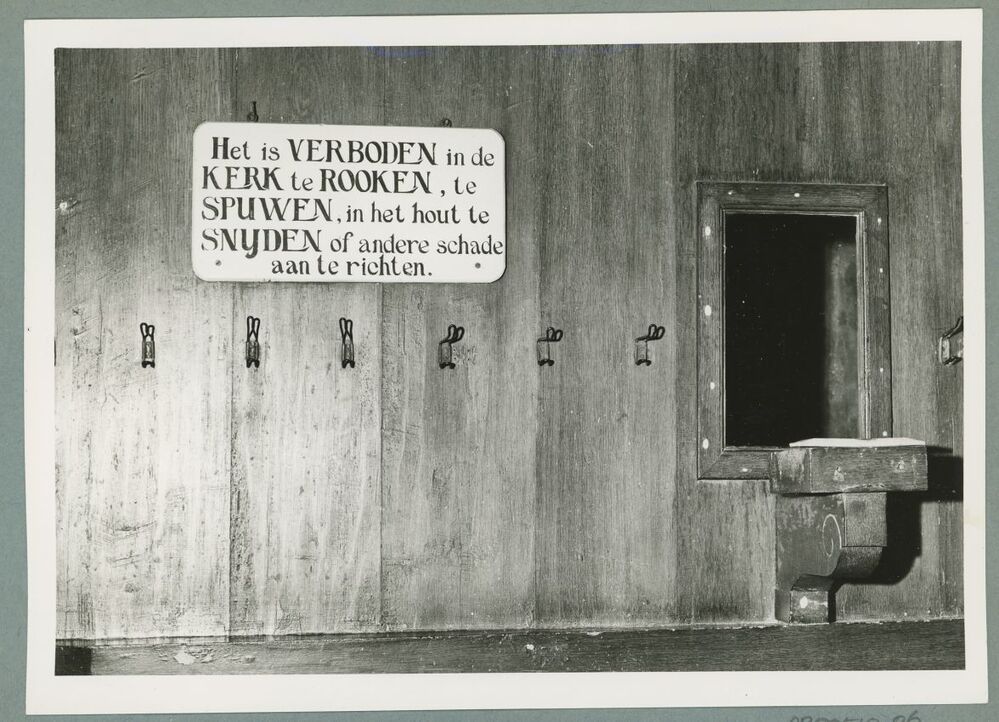 Het is VERBODEN in de
KERK te ROOKEN, te
SPUWEN, in het hout te
SNYDEN of andere schade
aan te richten.